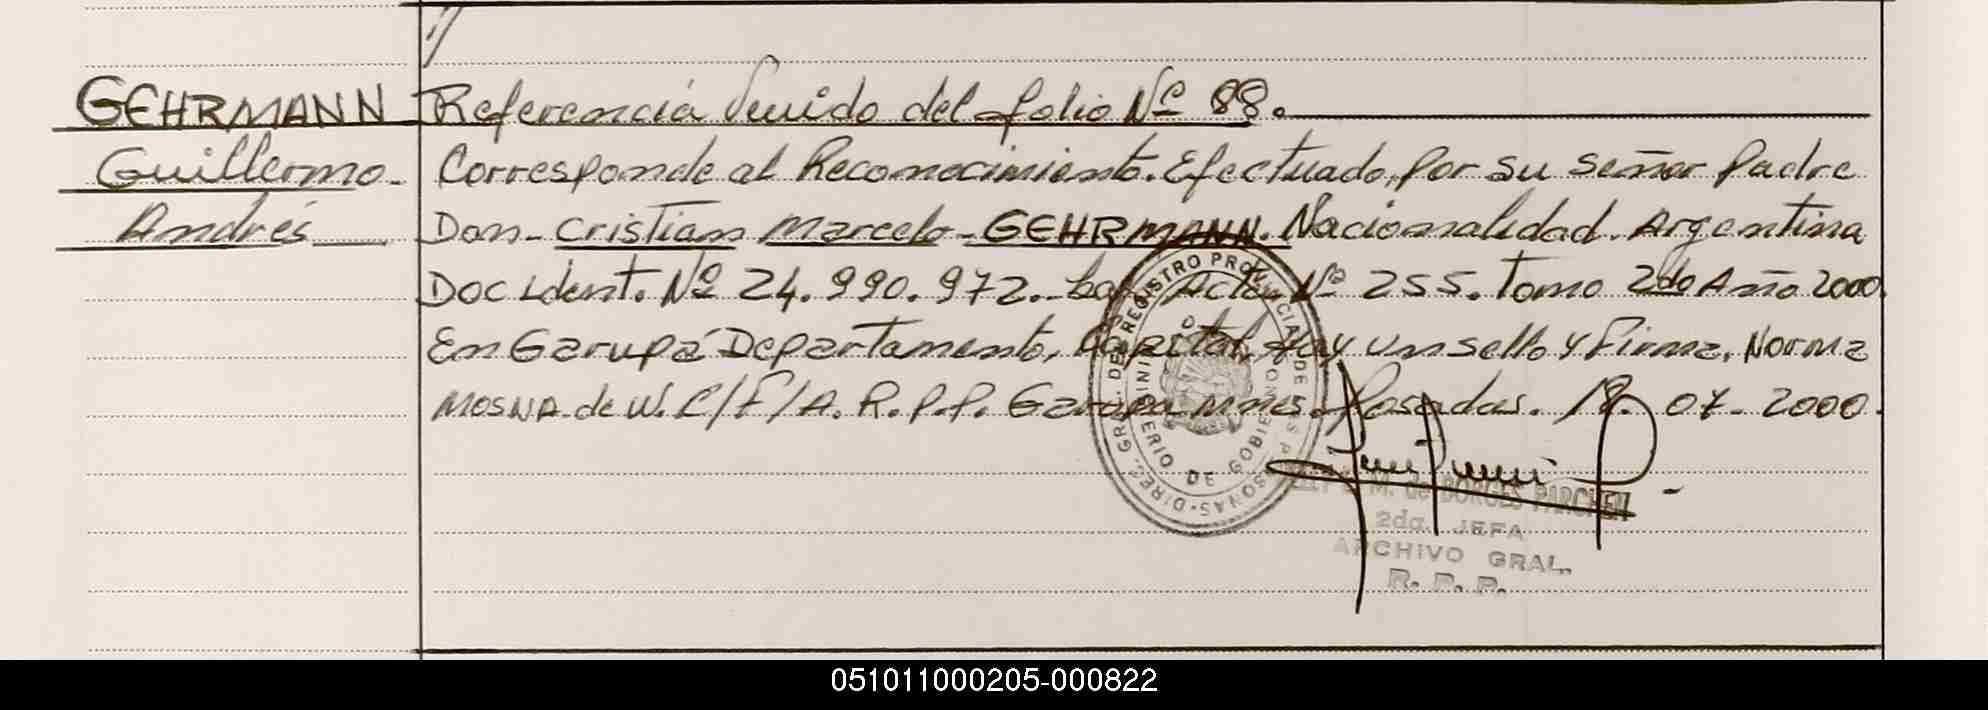 GEHRMANN Referencia Venido del folio Nº 88.
Guillermo Corresponde al Reconocimiento. Efectuado, por su señor Padre
Andrés Don- Cristian Marcelo-GEHRMANN. Nacionalidad. Argentina
Doc Ident. Nº 24.990.972.- bajo Acta Nº 255. Tomo 2do Año 2000.
En Garupá Departamento, Capital, Hay un sello y Firma, Norma
MOSNA de W. C/F/A. R.P.P. Garupá Mnes. Posadas. 18. 07. 2000.
M. de BORGES PARCHEN
2da. JEFA
ARCHIVO GRAL.
R. P. P.
051011000205-000822